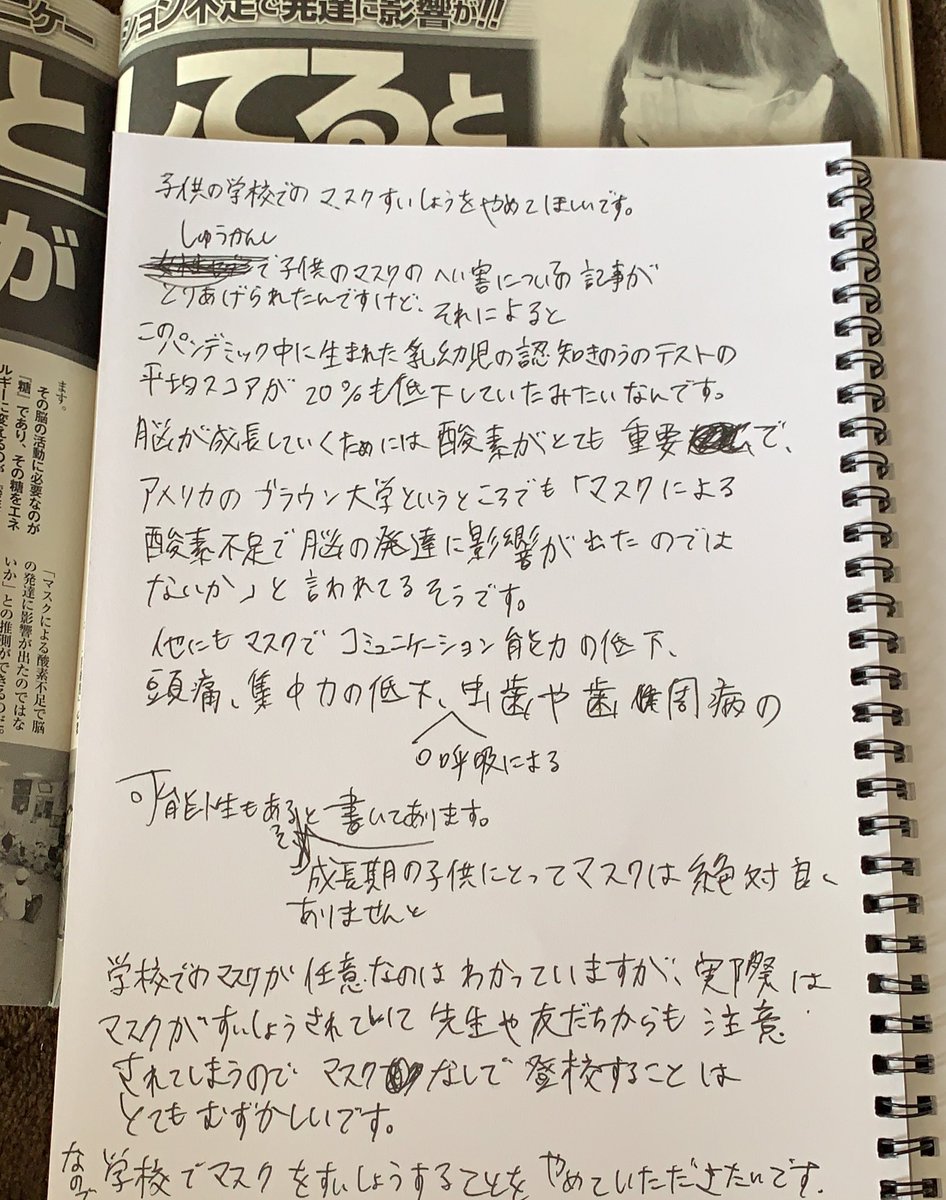 ニケー
ション不足で発達に影響が!!
と
してると
が
ます。
その脳の活動に必要なのが
「糖」であり、その糖をエネ
ルギーに変えるのが
「マスクによる酸素不足で脳
の発達に影響が出たのではな
いか」との推測ができるのだ。
子供の学校でのマスクすいしょうをやめてほしいです。
しゅうかんし
で子供のマスクのへい害についの記事が
とりあげられたんですけど、それによると
このパンデミック中に生まれた乳幼児の認知きのうのテストの
平均スコアが20%も低下していたみたいなんです。
脳が成長していくためには酸素がとても重要で、
アメリカのブラウン大学というところでも「マスクによる
酸素不足で脳の発達に影響が出たのでは
ないか」と言われてるそうです。
他にもマスクでコミュニケーション能力の低下、
頭痛、集中力の低下、虫歯や歯周病の
口呼吸による
可能性もあると書いてあります。
成長期の子供にとってマスクは絶対良く
ありませんと
学校でのマスクが任意なのはわかっていますが、実際は
マスクがすいしょうされていて先生や友だちからも注意
されてしまうのでマスクなしで登校することは
とてもむずかしいです。
なので学校でマスクをすいしょうすることをやめていただきたいです。